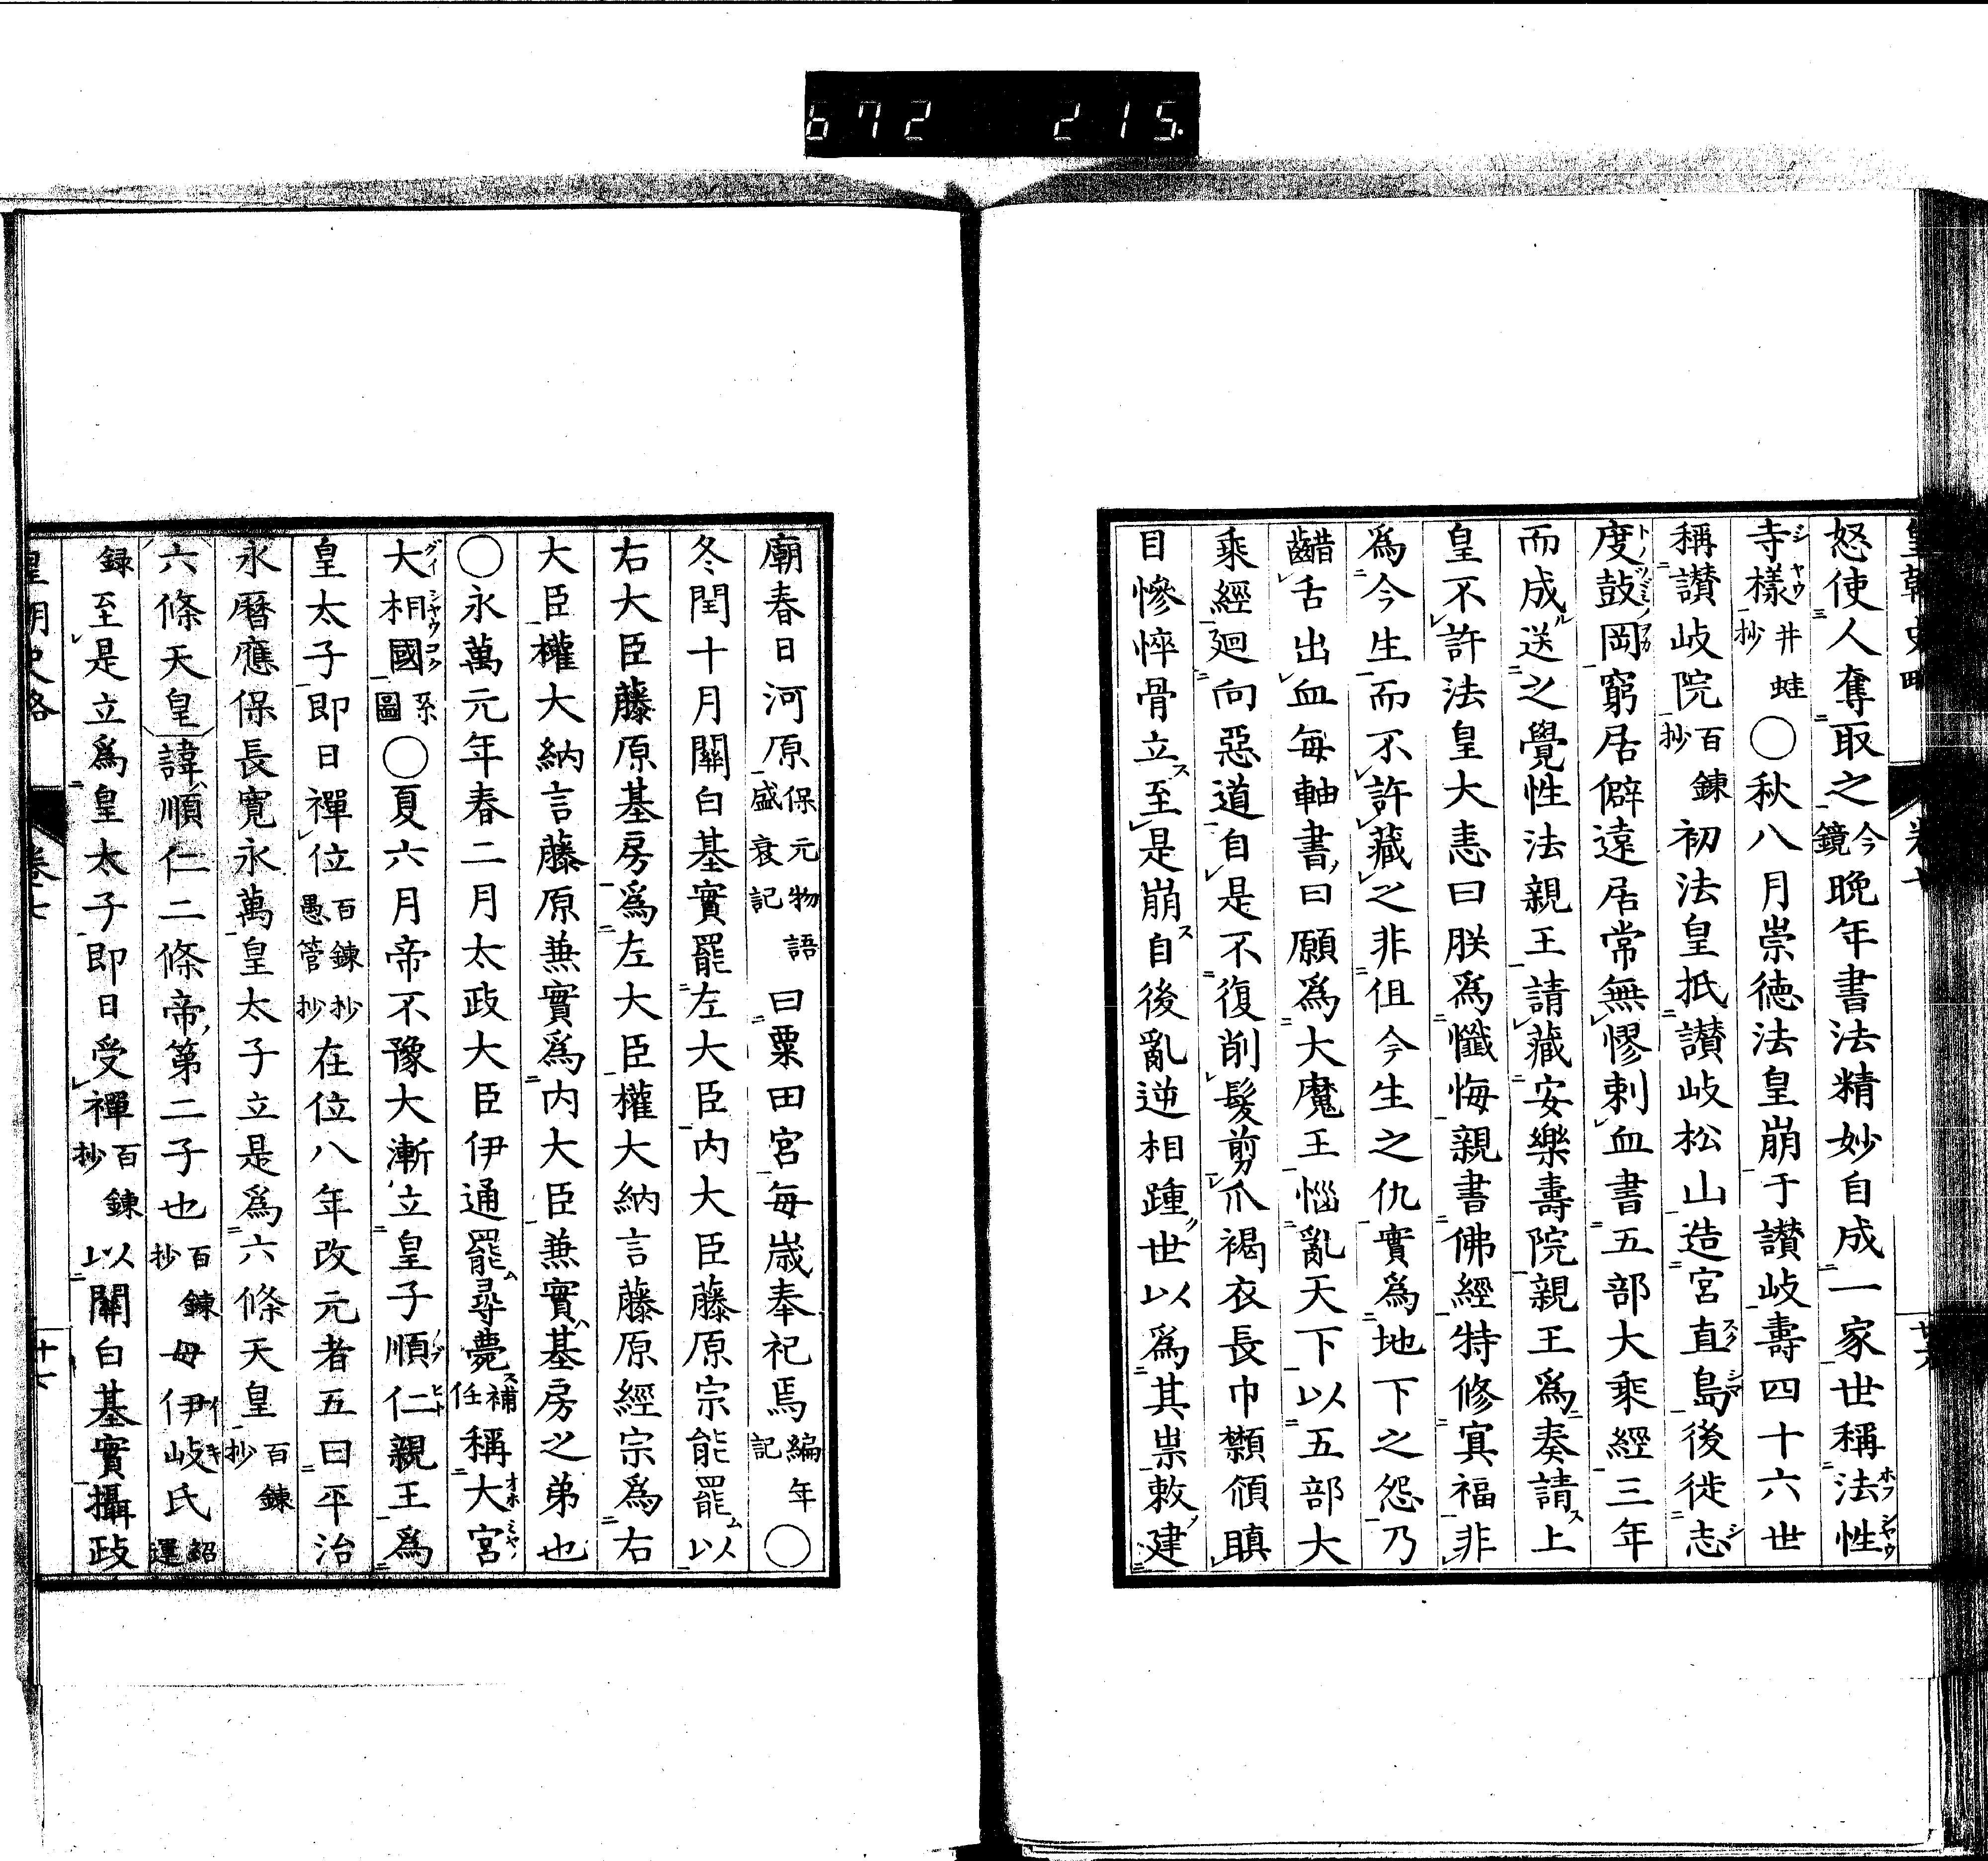 672 215.
皇朝史略 卷七 廿六
怒使人奪取之今鏡晚年書法精妙自成一家世稱法性
寺様井蛙抄○秋八月崇徳法皇崩于讃岐壽四十六世
稱讃岐院百鍊抄初法皇抵讃岐松山造宮直島後徙志
度鼓岡窮居僻遠居常無憀刺血書五部大乘經三年
而成送之覺性法親王請藏安樂壽院親王爲奏請上
皇不許法皇大恚曰朕爲懺悔親書佛經特修冥福非
爲今生而不許藏之非徂今生之仇實爲地下之怨乃
齰舌出血每軸書曰願爲大魔王惱亂天下以五部大
乘經廻向惡道自是不復削髮剪爪褐衣長巾顙頎瞋
目慘悴骨立至是崩自後亂逆相踵世以爲其祟敕建
廟春日河原保元物語盛衰記曰粟田宮每歳奉祀焉編年記○
冬閏十月關白基實罷左大臣内大臣藤原宗能罷以
右大臣藤原基房爲左大臣權大納言藤原經宗爲右
大臣權大納言藤原兼實爲内大臣兼實基房之弟也
○永萬元年春二月太政大臣伊通罷尋薨補任稱大宮
大相國系圖○夏六月帝不豫大漸立皇子順仁親王爲
皇太子即日禪位百鍊抄愚管抄在位八年改元者五曰平治
永曆應保長寛永萬皇太子立是爲六條天皇百鍊抄
六條天皇諱順仁二條帝第二子也百鍊抄母伊岐氏紹運
録至是立爲皇太子即日受禪百鍊抄以關白基實攝政
皇朝史略 卷七 廿七